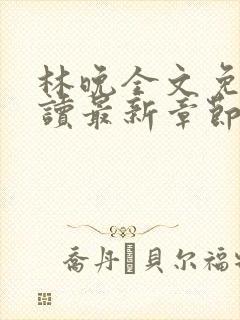 林晚全文免
讀最新章節
喬丹·貝尔福特